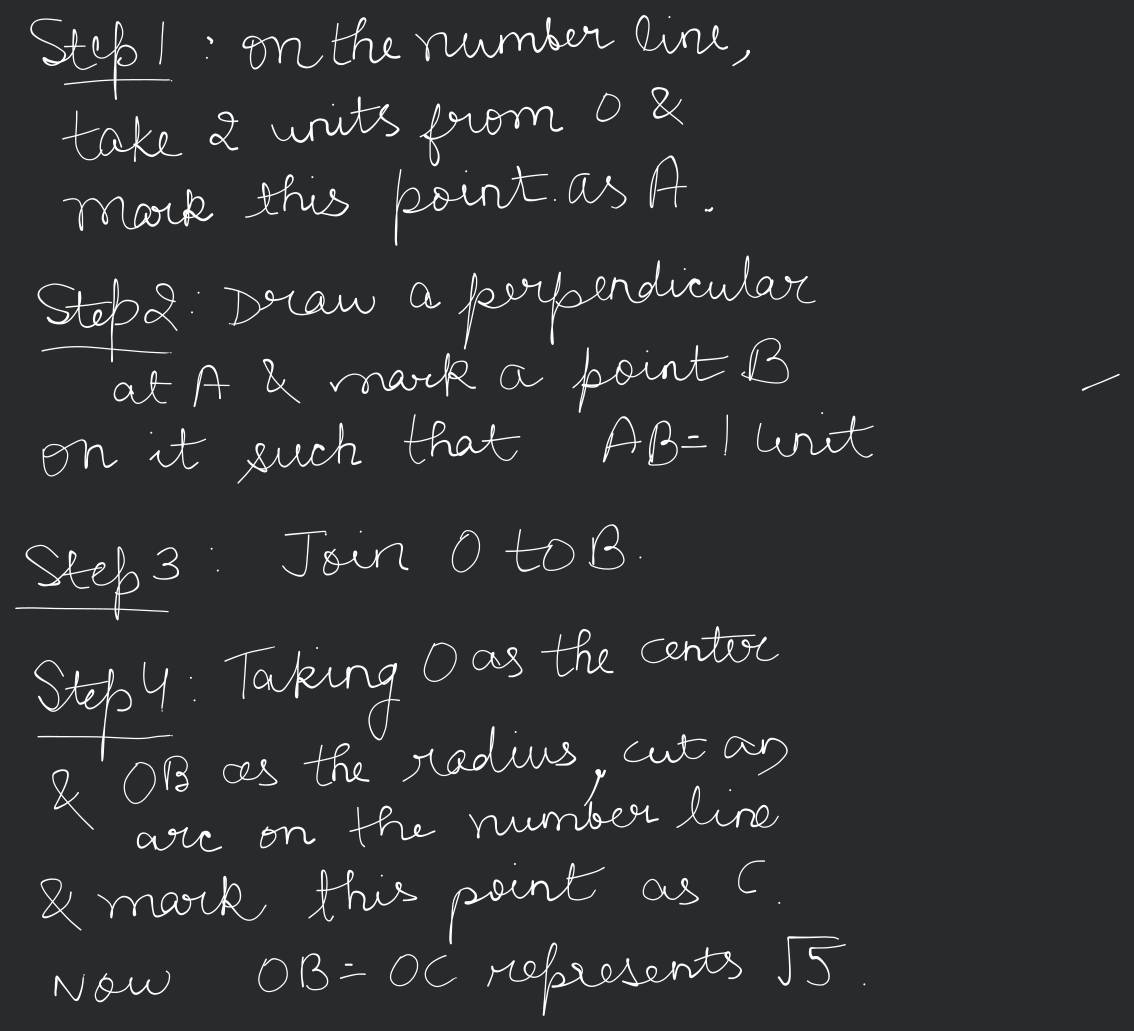 Step 1 : on the number line,
take 2 units from 0 &
mark this point as A.
Step 2 : Draw a perpendicular
at A & mark a point B
on it such that AB=1 unit
Step 3 : Join O to B.
Step 4 : Taking O as the center
& OB as the radius, cut an
arc on the number line
& mark this point as C.
Now OB = OC represents √5.